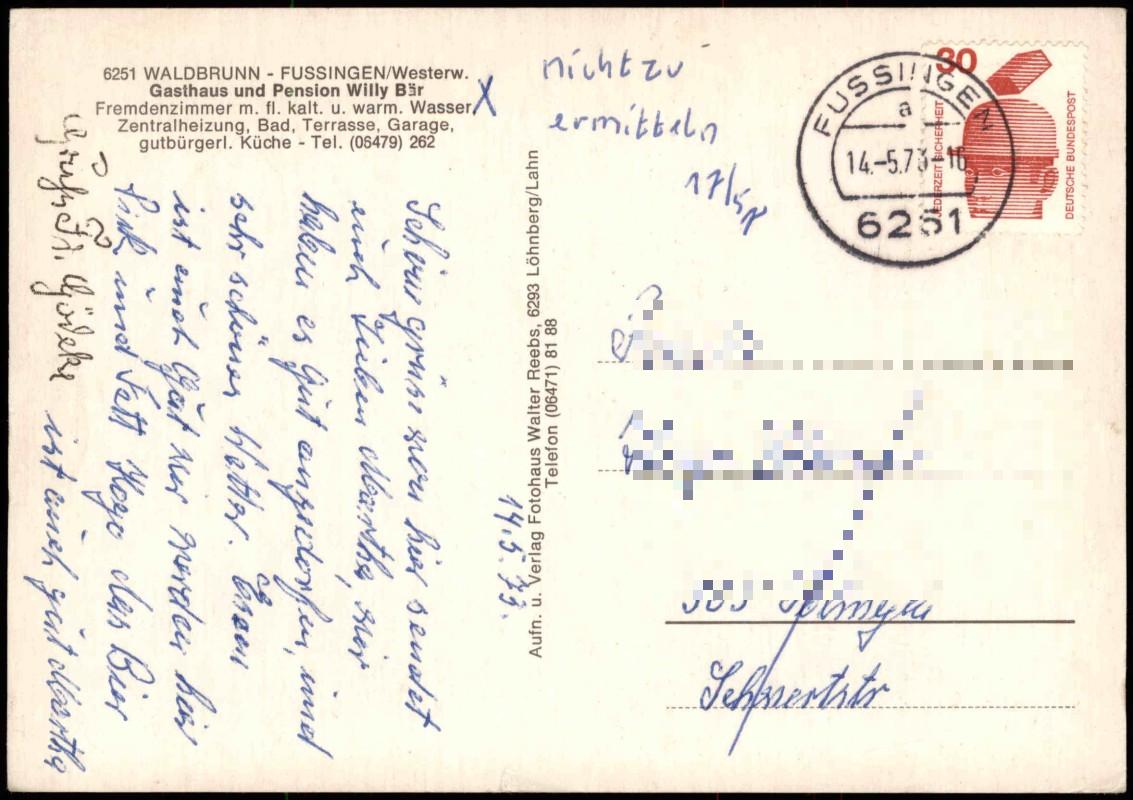 6251 WALDBRUNN - FUSSINGEN/Westerw.
Gasthaus und Pension Willy Bär
Fremdenzimmer m. fl. kalt. u. warm. Wasser,
Zentralheizung, Bad, Terrasse, Garage,
gutbürgerl. Küche - Tel. (06479) 262
X
nicht zu
ermitteln
17/5
FUSSINGEN
a
14.-5.73-16
6251
30
JEDERZEIT SICHERHEIT
DEUTSCHE BUNDESPOST
14.5.73.
Schöne grüse von hier sendet
euch Lieben Martha, wir
haben es gut angedorfen, und
sehr schönes Watter. Essen
ist auch Gut wir werden hier
Dick und Fatt Hugo das Bier
ist auch gut Martha
Gruß Fr. Gödeke
Aufn. u. Verlag Fotohaus Walter Reebs, 6293 Löhnberg/Lahn
Telefon (06471) 81 88
Schwertstr